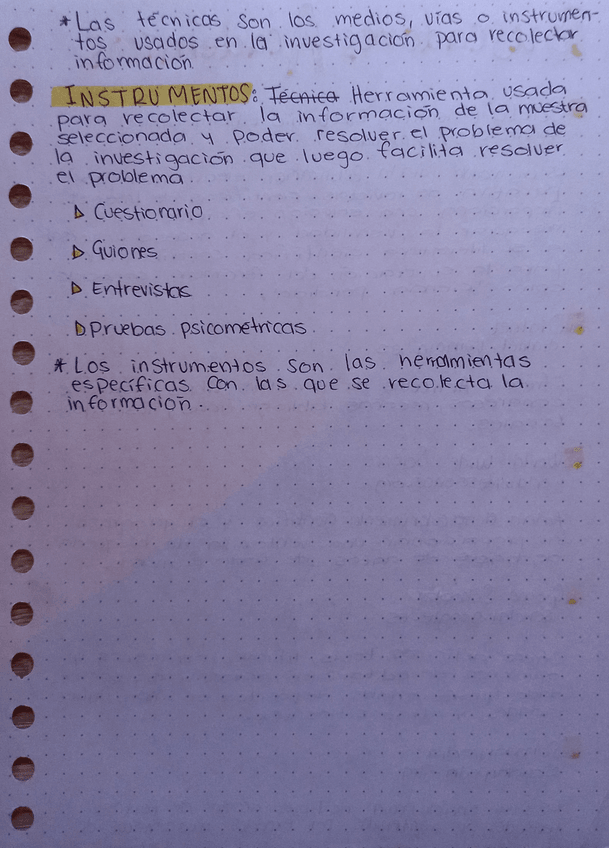 * Las técnicas son los medios, vías o instrumen-
tos usados en la investigación para recolectar
información
INSTRUMENTOS: Técnica Herramienta usada
para recolectar la información de la muestra
seleccionada y poder resolver el problema de
la investigación que luego facilita resolver
el problema
Cuestionario
Guiones
Entrevistas
Pruebas psicométricas
* Los instrumentos son las herramientas
específicas con las que se recolecta la
información.